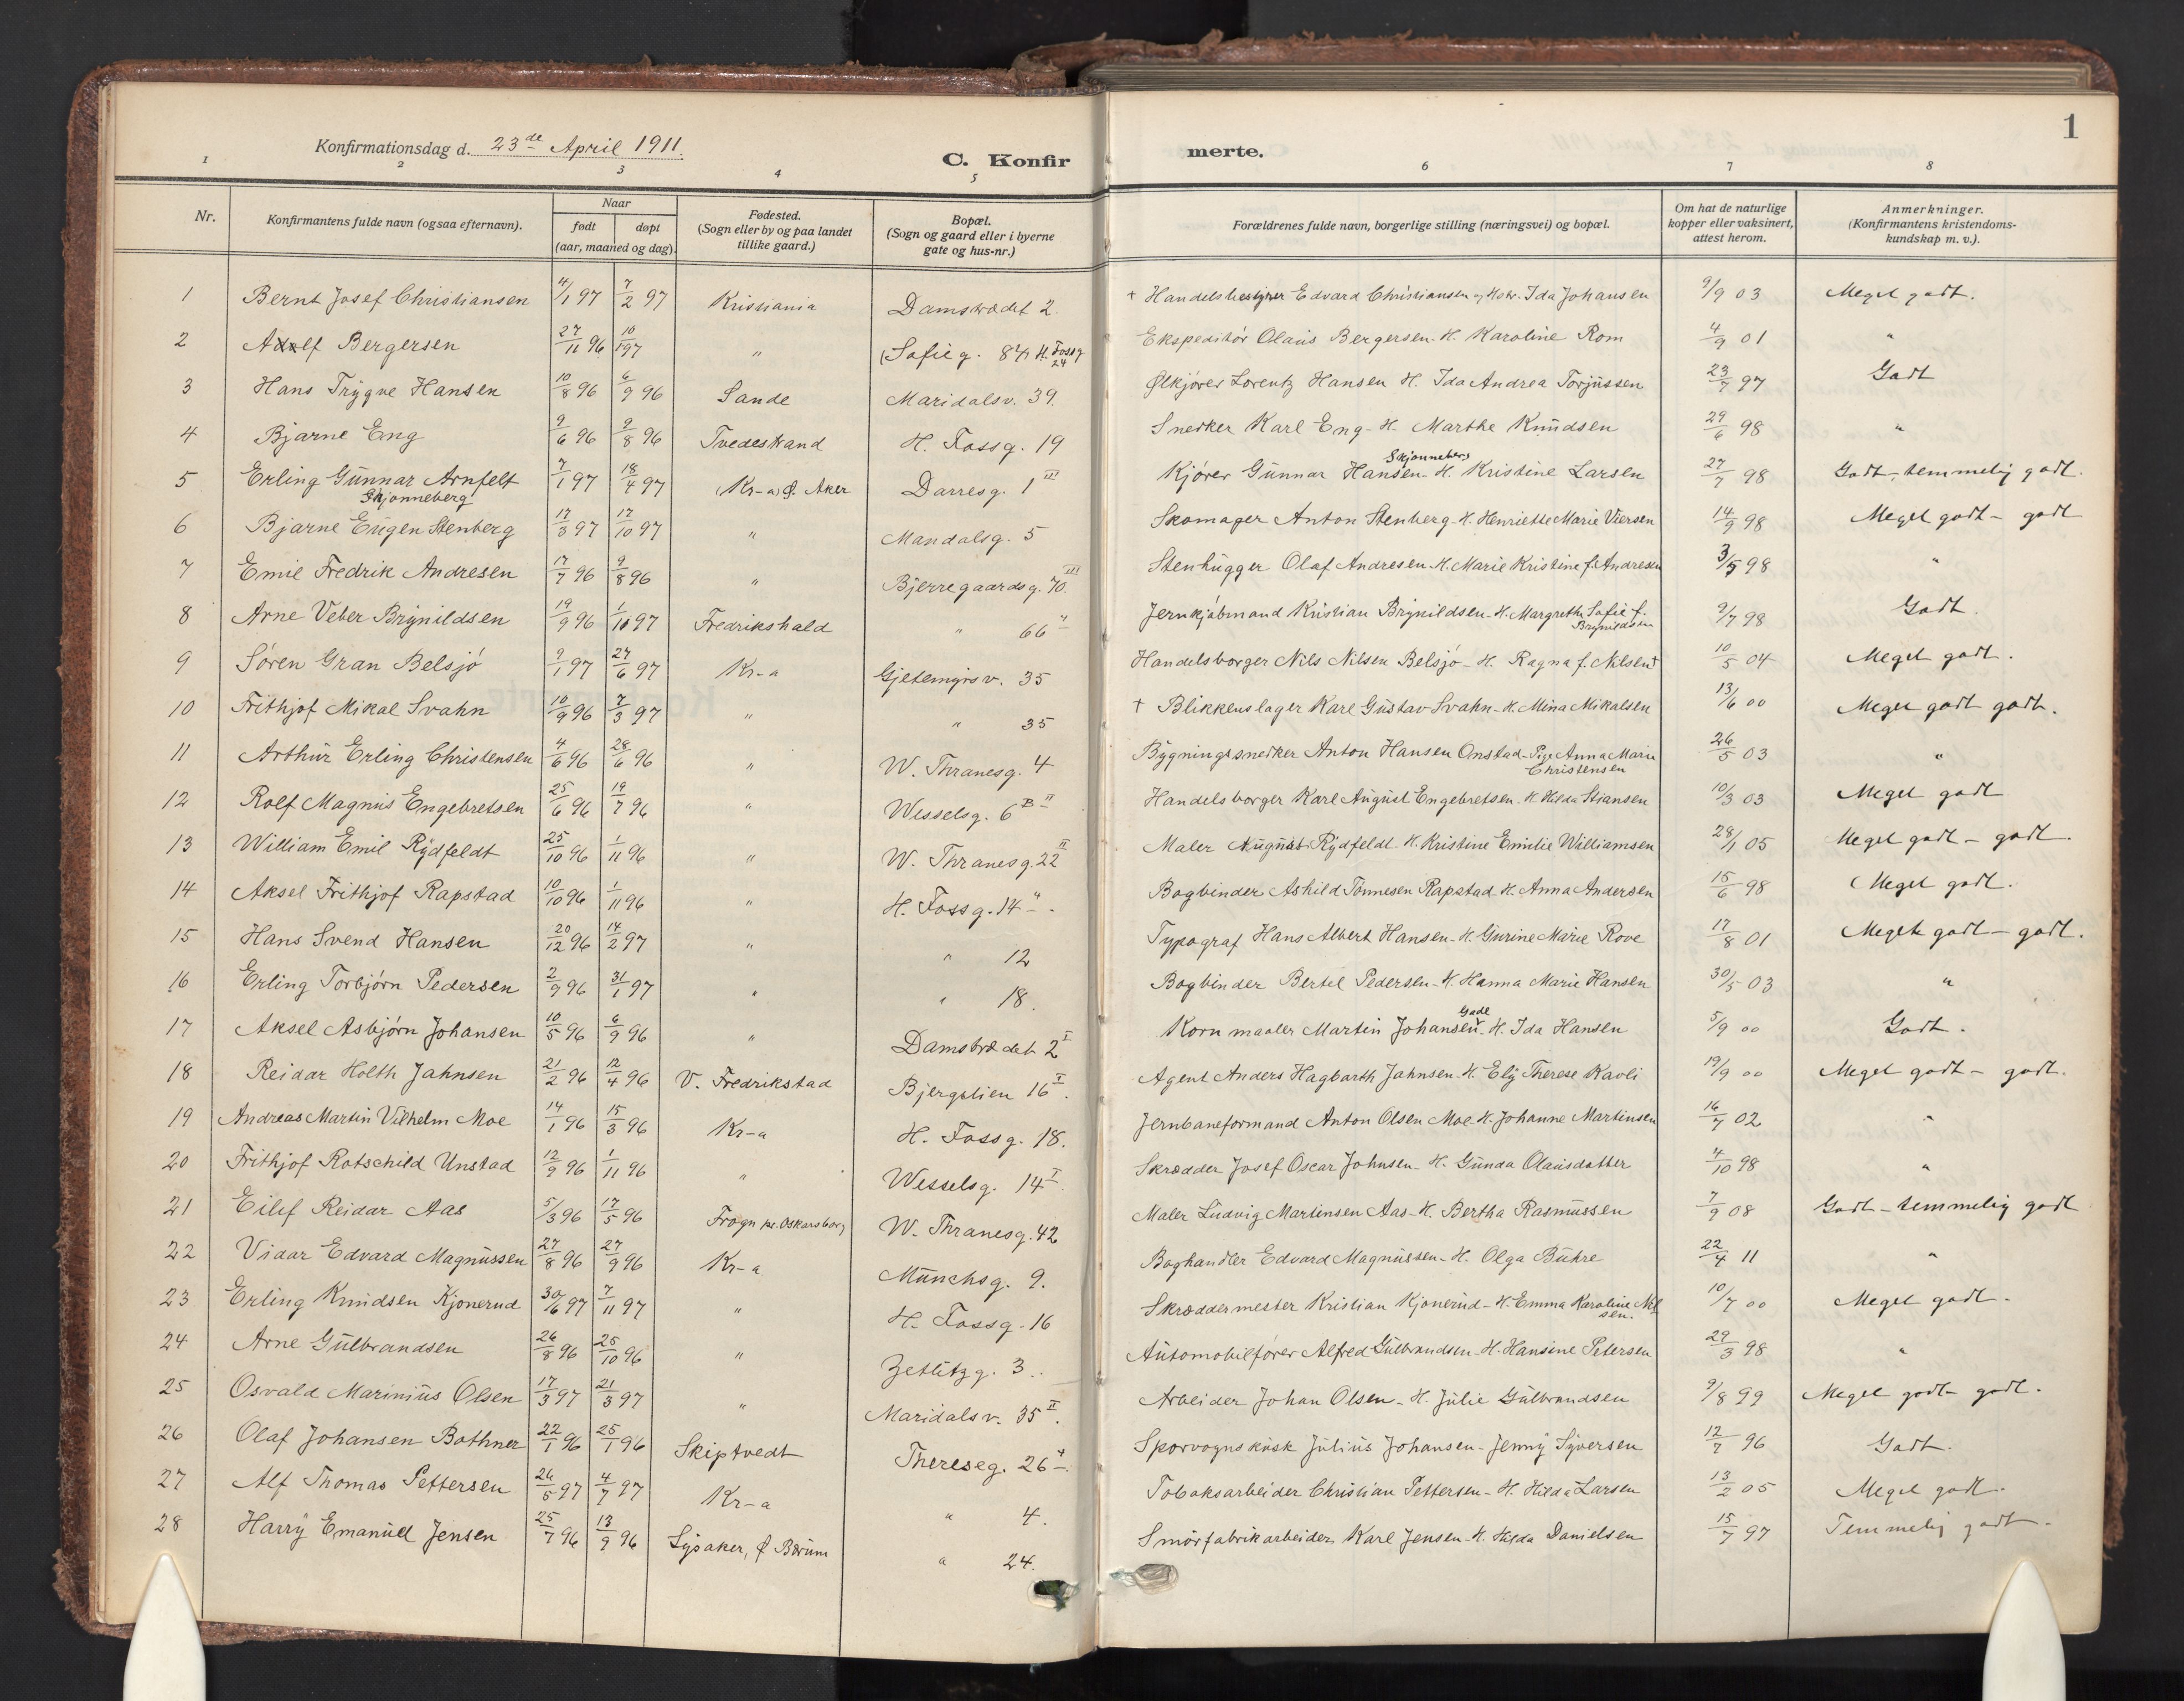 1
Konfirmationsdag d. 23de April 1911.
C. Konfir merte.
1 2 3 4 5 6 7 8
Nr. Konfirmantens fulde navn (ogsaa efternavn). Naar født døpt (aar, maaned og dag) Fødested. (Sogn eller by og paa landet tillike gaard.) Bopæl. (Sogn og gaard eller i byerne gate og hus-nr.) Forældrenes fulde navn, borgerlige stilling (næringsvei) og bopæl. Om hat de naturlige kopper eller vaksinert, attest herom. Anmerkninger. (Konfirmantens kristendoms-kundskap m. v.).
1 Bernt Josef Christiansen 4/1 97 7/2 97 Kristiania Damstrædet 2. + Handelsbestyrer Edvard Christiansen og Hstr. Ida Johansen 9/9 03 Meget godt.
2 Bergersen 27/11 96 10/1 97 " Sofieg. H. Fossg 24 Ekspeditør Olaus Bergersen. H. Karoline Rom 4/9 01 "
3 Hans Trygve Hansen 10/8 96 6/9 96 Sande Maridalsv. 39. Ølkjører Lorentz Hansen H. Ida Andrea Torjussen 23/7 97 Godt
4 Bjarne Eng 9/6 96 9/8 96 Tvedestrand H. Fossg. 19 Snedker Karl Eng - H. Marthe Knudsen 29/6 98 "
5 Erling Gunnar Arnfelt Skjonneberg 7/1 97 18/4 97 (Kr-a) Ø. Aker Darresg. 1 III Kjører Gunnar Hansen Skjonneberg - H. Kristine Larsen 27/7 98 Godt, temmelig godt.
6 Bjarne Eugen Stenberg 17/3 97 17/10 97 " Mandalsg. 5 Skomager Anton Stenberg - H. Henriette Marie Viersen 14/9 98 Meget godt - godt
7 Emil Fredrik Andresen 17/7 96 9/8 96 " Bjerregaardsg. 70. III Stenhugger Olaf Andresen - H. Marie Kristine f. Andresen 3/5 98 "
8 Arne Veber Brynildsen 19/9 96 1/10 97 Fredrikshald " 66 " Jernkjøbmand Kristian Brynildsen - H. Margrethe Sofie f. Brynildsen 9/7 98 Godt.
9 Søren Gran Belsjø 9/1 97 27/6 97 Kr-a Gjetemyrsv. 35 Handelsborger Nils Nilsen Belsjø - H. Ragna f. Nilsen + 10/5 04 Meget godt.
10 Frithjof Mikal Svahn 10/9 96 7/3 97 " " 35 + Blikkenslager Karl Gustav Svahn - H. Mina Mikalsen 13/6 00 Meget godt godt.
11 Arthur Erling Christensen 4/6 96 28/6 96 " W. Thranesg. 4 Bygningssnedker Anton Hansen Onstad - Pige Anna Marie Christensen 26/5 03 "
12 Rolf Magnus Engebretsen 25/6 96 19/7 96 " Wesselsg. 6 B II Handelsborger Karl August Engebretsen - H. Hilda Stiansen 10/3 03 Meget godt
13 William Emil Rydfeldt 25/10 96 1/11 96 " W. Thranesg. 22 II Maler August Rydfeldt - H. Kristine Emilie Williamsen 28/1 05 Meget godt - godt.
14 Aksel Frithjof Rapstad 10/10 96 1/11 96 " H. Fossg. 14 " Bogbinder Ashild Tønnesen Rapstad H. Anna Andersen 15/6 98 Meget godt.
15 Hans Svend Hansen 20/12 96 14/2 97 " " 12 Typograf Hans Albert Hansen - H. Gurine Marie Rove 17/8 01 Meget godt - godt.
16 Erling Torbjørn Pedersen 2/9 96 31/1 97 " " 18. Bogbinder Bertel Pedersen - H. Hanna Marie Hansen 30/5 03 "
17 Aksel Asbjørn Johansen 10/5 96 6/9 96 " Damstrædet 2 I Kornmaaler Martin Johansen Gade - H. Ida Hansen 5/9 00 Godt.
18 Reidar Holth Jahnsen 21/2 96 12/4 96 V. Fredrikstad Bjergstien 16 I. Agent Anders Hagbarth Jahnsen - H. Ely Therese Kavli 19/9 00 Meget godt - godt.
19 Andreas Martin Vilhelm Moe 14/1 96 15/3 96 Kr-a H. Fossg. 18. Jernbaneformand Anton Olsen Moe - H. Johanne Martinsen 16/7 02 "
20 Frithjof Rotschild Unstad 12/9 96 1/11 96 " Wesselsg. 14 I. Skrædder Josef Oscar Johnsen - H. Gunda Olausdatter 4/10 98 "
21 Eilif Reidar Aas 5/3 96 17/5 96 Frogn pr. Oskarsborg W. Thranesg. 42 Maler Ludvig Martinsen Aas - H. Bertha Rasmussen 7/9 08 Godt - temmelig godt
22 Vidar Edvard Magnussen 27/8 96 27/9 96 Kr-a Munchsg. 9. Boghandler Edvard Magnussen - H. Olga Buhre 22/4 11 "
23 Erling Knudsen Kjonerud 30/6 97 7/11 97 " H. Fossg. 16 Skræddermester Kristian Kjonerud - H. Emma Karoline Nilsen. 10/7 00 Meget godt.
24 Arne Gulbrandsen 26/8 96 25/10 96 " Zetlitzg. 3. Automobilfører Alfred Gulbrandsen - H. Hansine Petersen 29/3 98 "
25 Osvald Marinius Olsen 17/3 97 21/3 97 " Maridalsv. 35 II. Arbeider Johan Olsen - H. Julie Gulbrandsen 9/8 99 Meget godt - godt.
26 Olaf Johansen Bothner 22/1 96 25/1 96 Skiptvedt Thereseg. 26 Sporvognskusk Julius Johansen - Jenny Syversen 12/7 96 Godt.
27 Alf Thomas Pettersen 26/5 97 4/7 97 Kr-a " 4. Tobaksarbeider Christian Pettersen - H. Hilda Larsen 13/2 05 Meget godt.
28 Harry Emanuel Jensen 25/7 96 13/9 96 Lysaker, Ø Bærum " 24. Smørfabrikarbeider Karl Jensen - H. Hilda Danielsen 15/7 97 Temmelig godt -